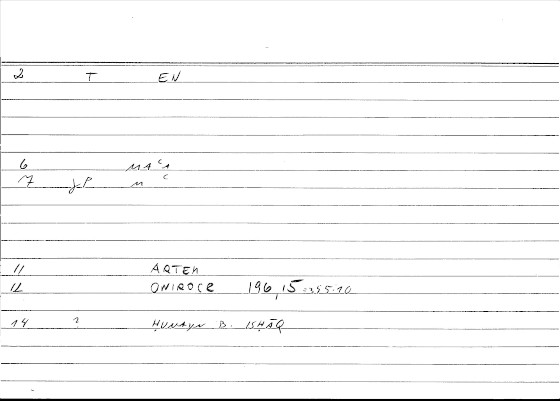 2 T EN
6 MAʿA
7 JP M ʿ
11 ARTEM
12 ONIROCR 196,15 = 355.10
14 ? ḤUNAYN B. ISḤĀQ